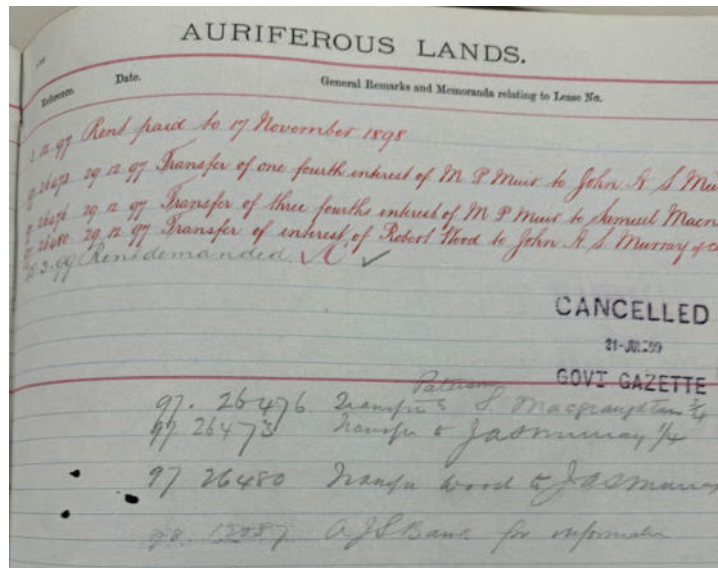 AURIFEROUS LANDS.
Reference. Date. General Remarks and Memoranda relating to Lease No.
3.12.97 Rent paid to 17 November 1898
97.26473. 29 12 97 Transfer of one fourth interest of M P Muir to John A S Mur
97.26476 29 12 97 Transfer of three fourths interest of M P Muir to Samuel Macn
97.26480. 29 12 97 Transfer of interest of Robert Wood to John A S Murray of
3.99 Rent demanded.
CANCELLED
21-JUL.99
GOVT GAZETTE
97. 26476 Transfer to S. Macnaughtan 3/4
97 26473 Transfer to JASMurray 1/4
97 26480 Transfer Wood to JASMurray
98. A J S Bank for information